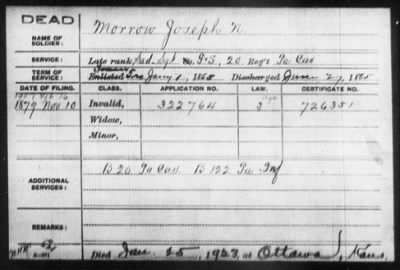 DEAD
NAME OF SOLDIER: Morrow Joseph N.
SERVICE: Late rank, Sgt. Co. G & I, 20 Reg't Pa Cav
TERM OF SERVICE: Enlisted Jany 1, 1865 Discharged June 27, 1865
DATE OF FILING. CLASS. APPLICATION NO. LAW. CERTIFICATE NO.
1879 Nov. 10 Invalid, 322764 726351
Widow,
Minor,
ADDITIONAL SERVICES: B 20 Pa Cav. B 122 Pa Inf
REMARKS:
Died Jan. 25, 1923, at Ottawa, Kans.